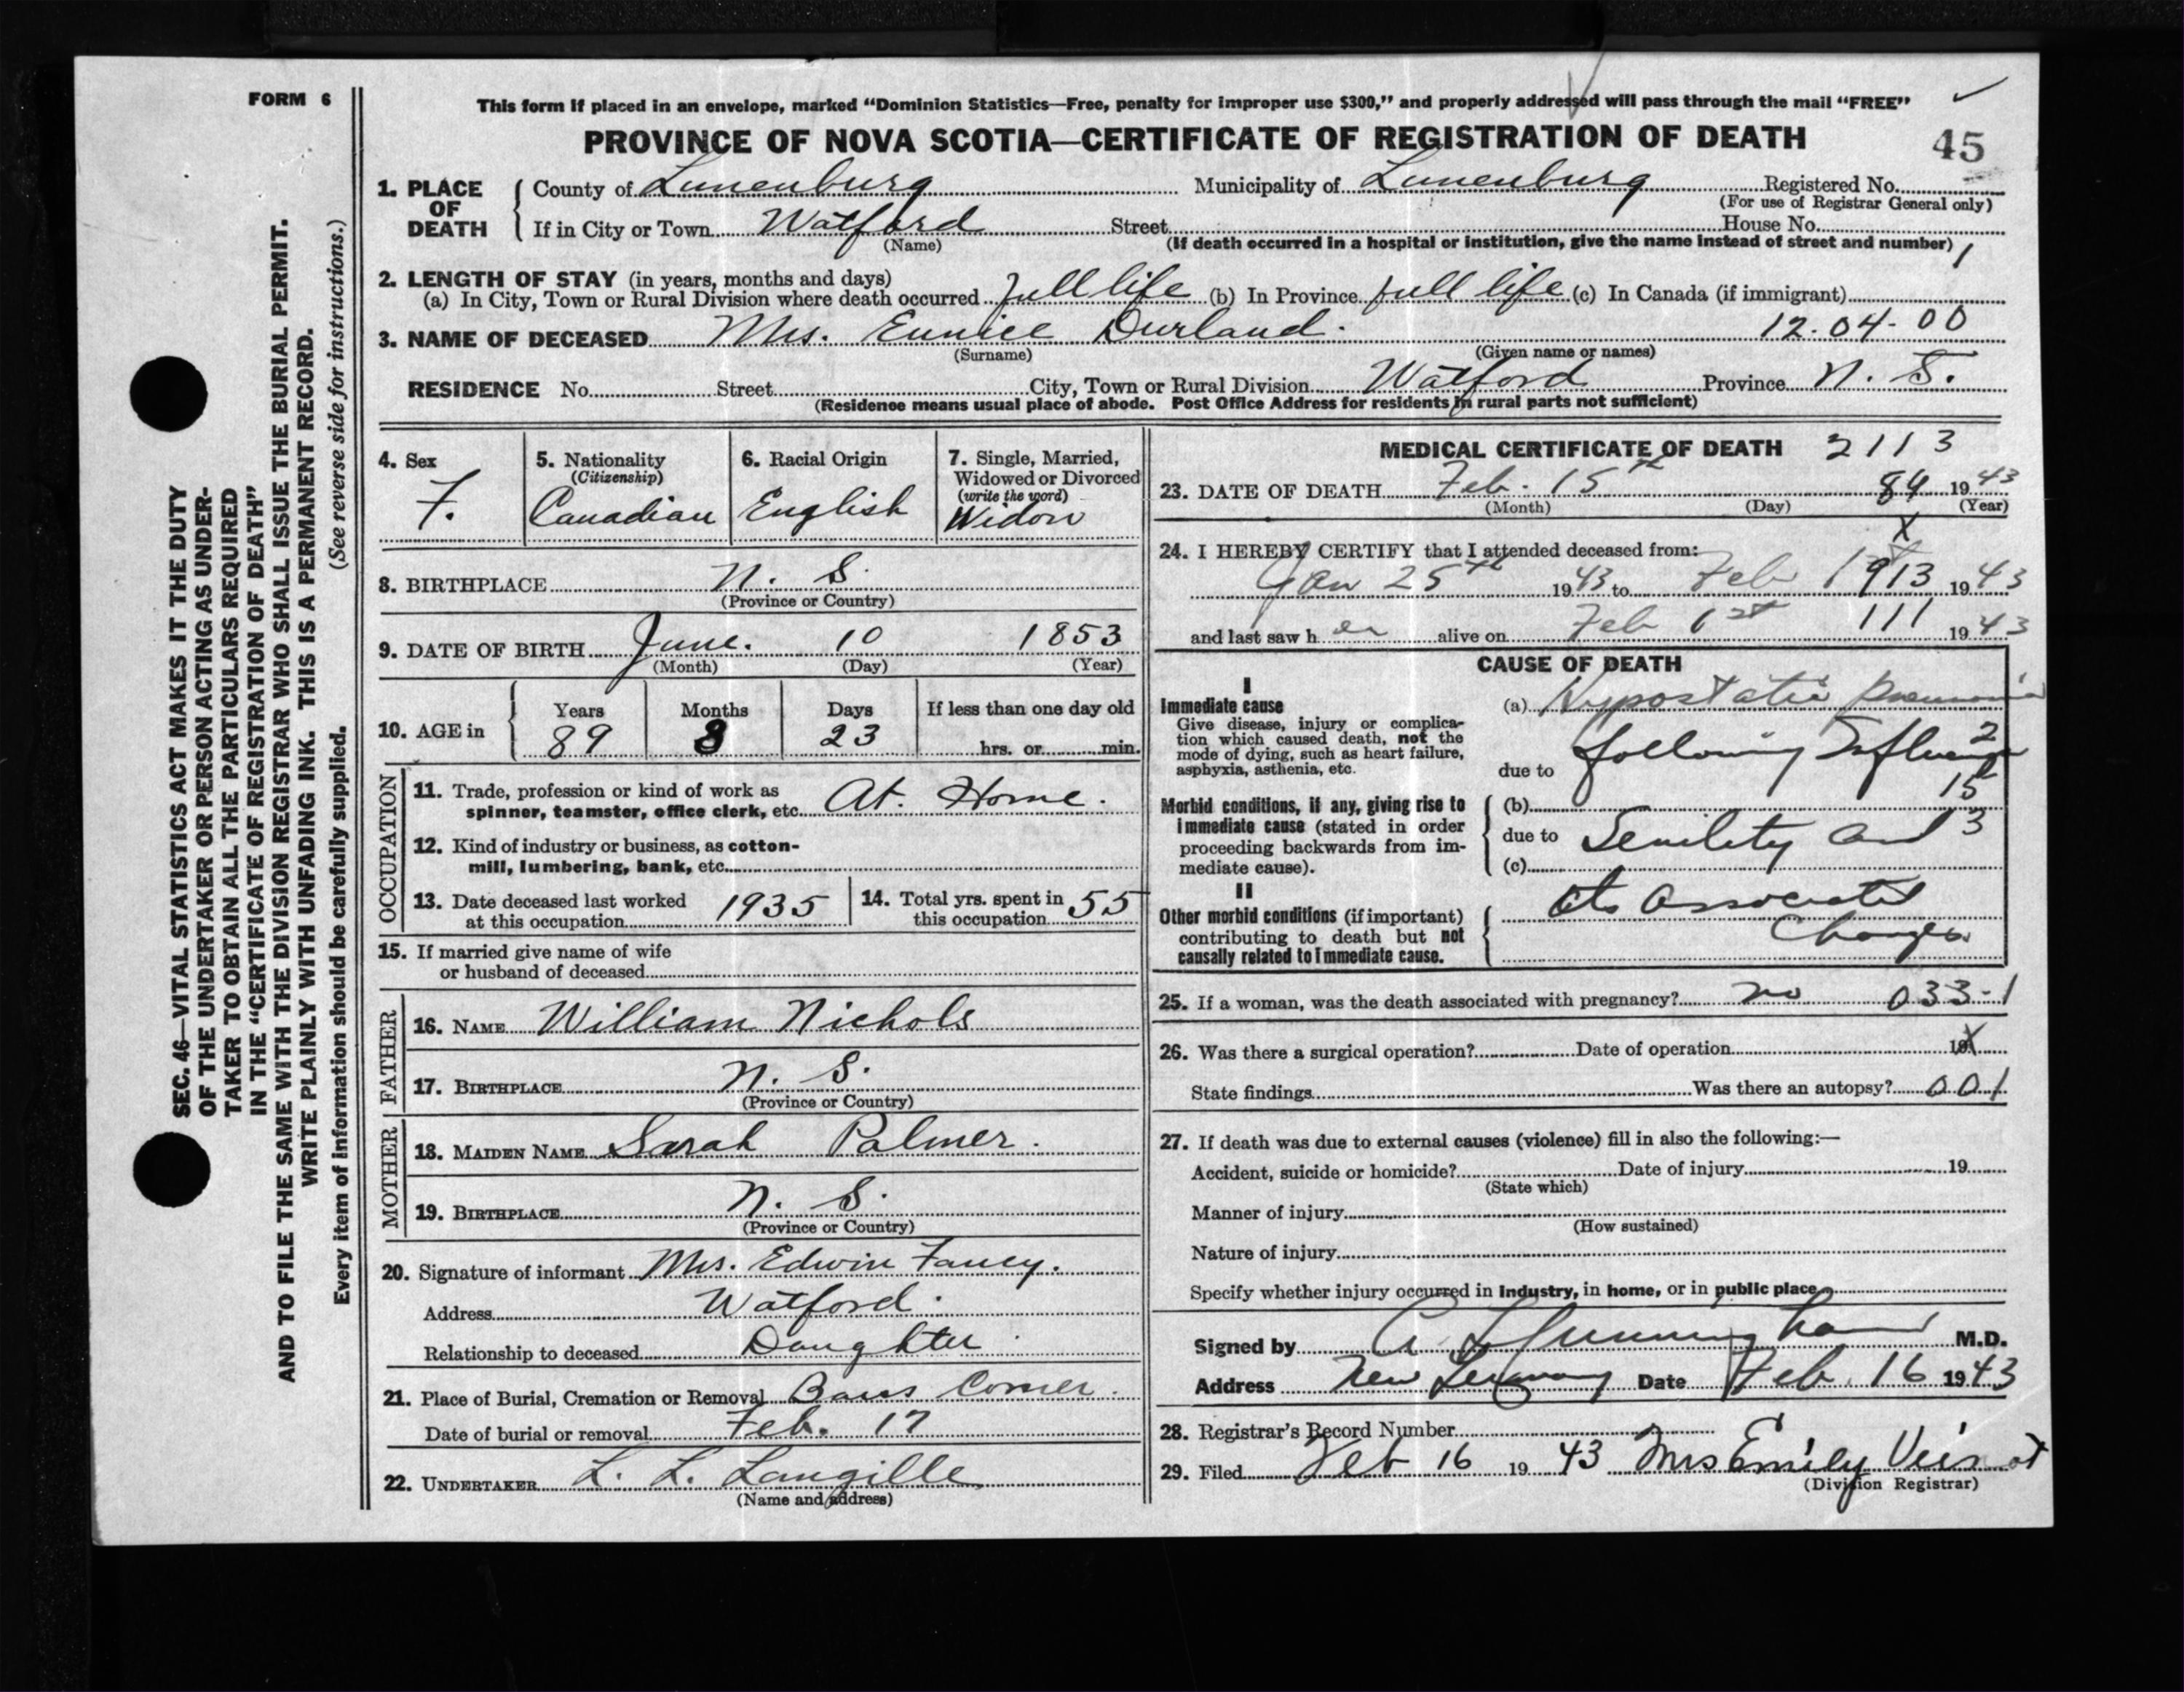 FORM 6
This form if placed in an envelope, marked “Dominion Statistics—Free, penalty for improper use $300,” and properly addressed will pass through the mail “FREE”
PROVINCE OF NOVA SCOTIA—CERTIFICATE OF REGISTRATION OF DEATH
45
1. PLACE OF DEATH
County of Lunenburg Municipality of Lunenburg Registered No.
(For use of Registrar General only)
If in City or Town Watford Street House No.
(Name) (If death occurred in a hospital or institution, give the name instead of street and number) 1
2. LENGTH OF STAY (in years, months and days)
(a) In City, Town or Rural Division where death occurred full life (b) In Province full life (c) In Canada (if immigrant)
3. NAME OF DECEASED Mrs. Eunice Durland. 12.04-00
(Surname) (Given name or names)
RESIDENCE No. Street City, Town or Rural Division Watford Province N. S.
(Residence means usual place of abode. Post Office Address for residents in rural parts not sufficient)
4. Sex
F.
5. Nationality
(Citizenship)
Canadian
6. Racial Origin
English
7. Single, Married,
Widowed or Divorced
(write the word)
Widow
8. BIRTHPLACE N. S.
(Province or Country)
9. DATE OF BIRTH June. 10 1853
(Month) (Day) (Year)
10. AGE in
Years Months Days If less than one day old
89 8 23 hrs. or min.
OCCUPATION
11. Trade, profession or kind of work as
spinner, teamster, office clerk, etc. At. Home.
12. Kind of industry or business, as cotton-
mill, lumbering, bank, etc.
13. Date deceased last worked
at this occupation 1935
14. Total yrs. spent in
this occupation 55
15. If married give name of wife
or husband of deceased
FATHER
16. NAME William Nichols
17. BIRTHPLACE N. S.
(Province or Country)
MOTHER
18. MAIDEN NAME Sarah Palmer.
19. BIRTHPLACE N. S.
(Province or Country)
20. Signature of informant Mrs. Edwin Fancy.
Address Watford.
Relationship to deceased Daughter
21. Place of Burial, Cremation or Removal Barss Corner.
Date of burial or removal Feb. 17
22. UNDERTAKER L. L. Langille
(Name and address)
MEDICAL CERTIFICATE OF DEATH 2113
23. DATE OF DEATH Feb. 15th 84 1943
(Month) (Day) (Year)
X
24. I HEREBY CERTIFY that I attended deceased from:
Jan 25th 1943 to Feb 1913 1943
and last saw her alive on Feb 1st 111 1943
CAUSE OF DEATH
I
Immediate cause
Give disease, injury or complica-
tion which caused death, not the
mode of dying, such as heart failure,
asphyxia, asthenia, etc.
(a) Hypostatic Pneumonia
due to following Influenza 2
15
Morbid conditions, if any, giving rise to
immediate cause (stated in order
proceeding backwards from im-
mediate cause).
(b)
due to Senility and 3
(c)
II
Other morbid conditions (if important)
contributing to death but not
causally related to immediate cause.
its associated
Changes
25. If a woman, was the death associated with pregnancy? no 033-1
26. Was there a surgical operation? Date of operation 19 X
State findings Was there an autopsy? 001
27. If death was due to external causes (violence) fill in also the following:—
Accident, suicide or homicide? Date of injury 19
(State which)
Manner of injury
(How sustained)
Nature of injury
Specify whether injury occurred in industry, in home, or in public place
Signed by M.D.
Address New Germany Date Feb. 16 1943
28. Registrar's Record Number
29. Filed Feb 16 1943 Mrs Emily Veinot
(Division Registrar)
SEC. 46—VITAL STATISTICS ACT MAKES IT THE DUTY
OF THE UNDERTAKER OR PERSON ACTING AS UNDER-
TAKER TO OBTAIN ALL THE PARTICULARS REQUIRED
IN THE “CERTIFICATE OF REGISTRATION OF DEATH”
AND TO FILE THE SAME WITH THE DIVISION REGISTRAR WHO SHALL ISSUE THE BURIAL PERMIT.
WRITE PLAINLY WITH UNFADING INK. THIS IS A PERMANENT RECORD.
Every item of information should be carefully supplied. (See reverse side for instructions.)